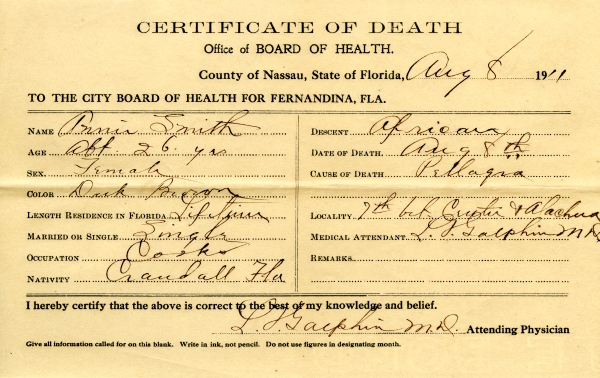 CERTIFICATE OF DEATH
Office of BOARD OF HEALTH.
County of Nassau, State of Florida, Aug 8 1911
TO THE CITY BOARD OF HEALTH FOR FERNANDINA, FLA.
NAME Smith
AGE Abt. 26 yrs
SEX Female
COLOR Dark Brown
LENGTH RESIDENCE IN FLORIDA Lifetime
MARRIED OR SINGLE Single
OCCUPATION Cook
NATIVITY Crandall Fla
DESCENT African
DATE OF DEATH Aug 8th
CAUSE OF DEATH Pellagra
LOCALITY 7th bet. & Alachua
MEDICAL ATTENDANT. Galphin MD
REMARKS
I hereby certify that the above is correct to the best of my knowledge and belief.
Galphin MD. Attending Physician
Give all information called for on this blank. Write in ink, not pencil. Do not use figures in designating month.